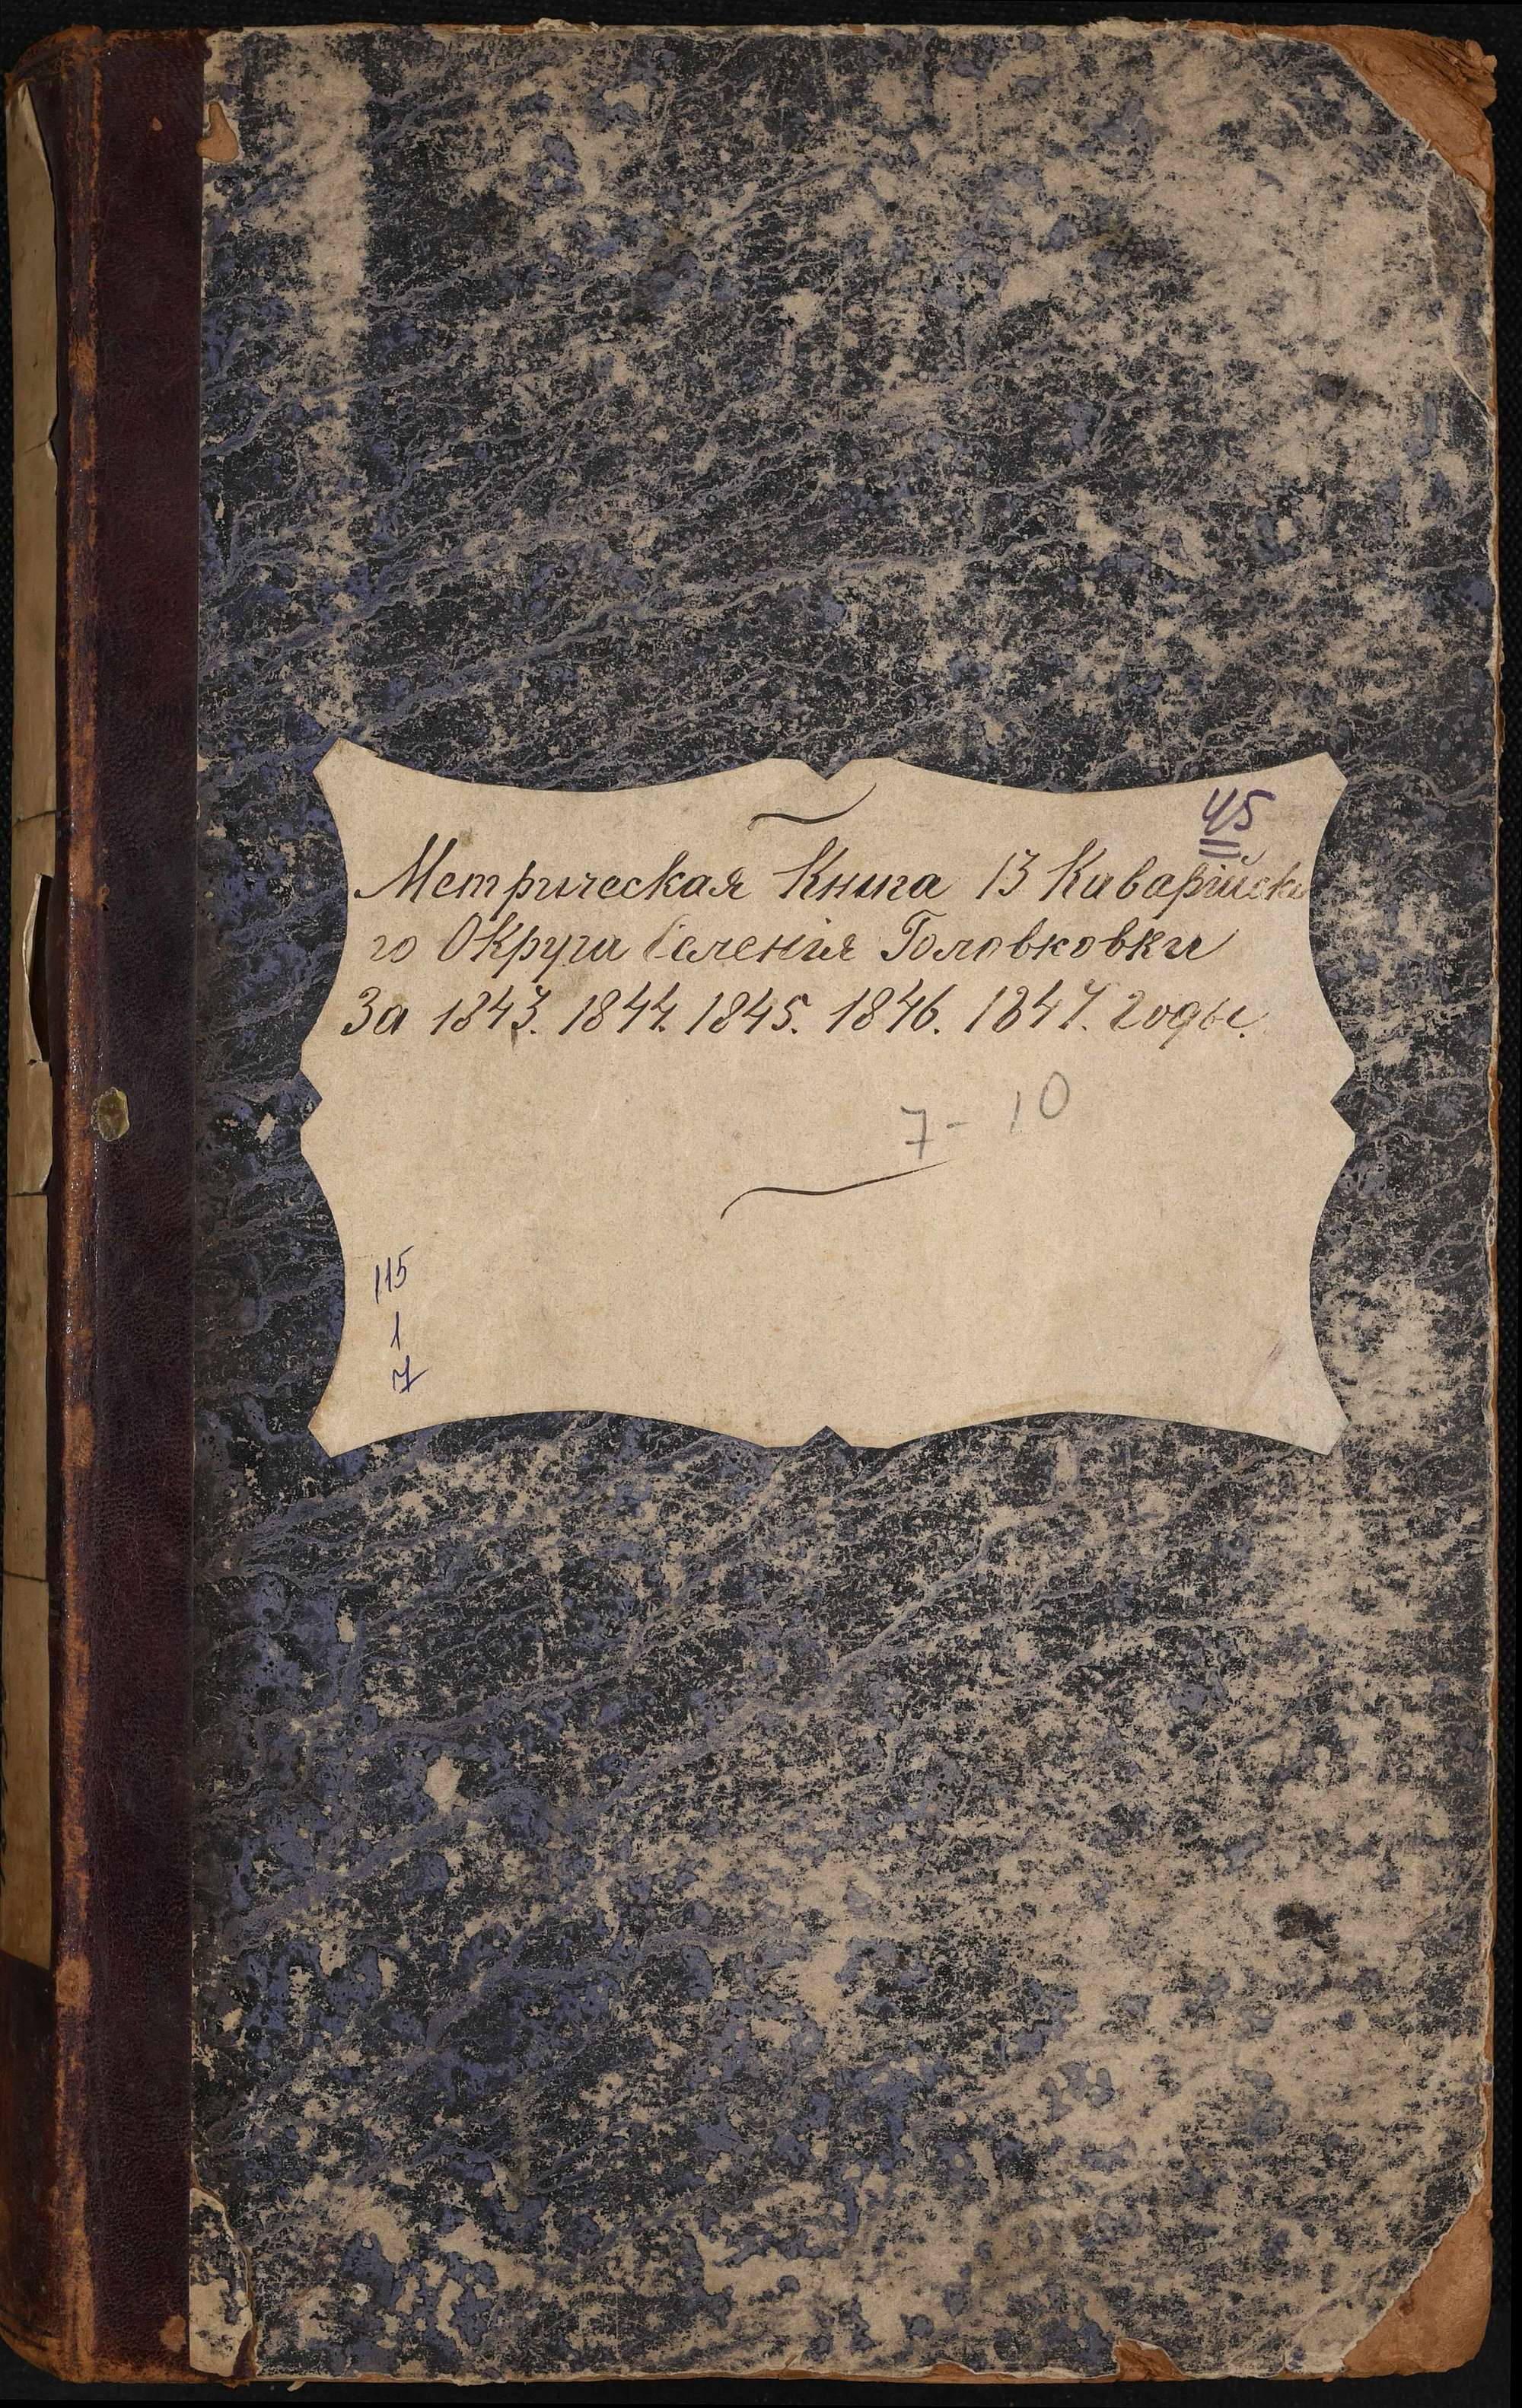 45
Метрическая Книга 13 Каварійска
го Округа Селенія Головковки
За 1843. 1844. 1845. 1846. 1847. годы.
7 - 10
115
1
7